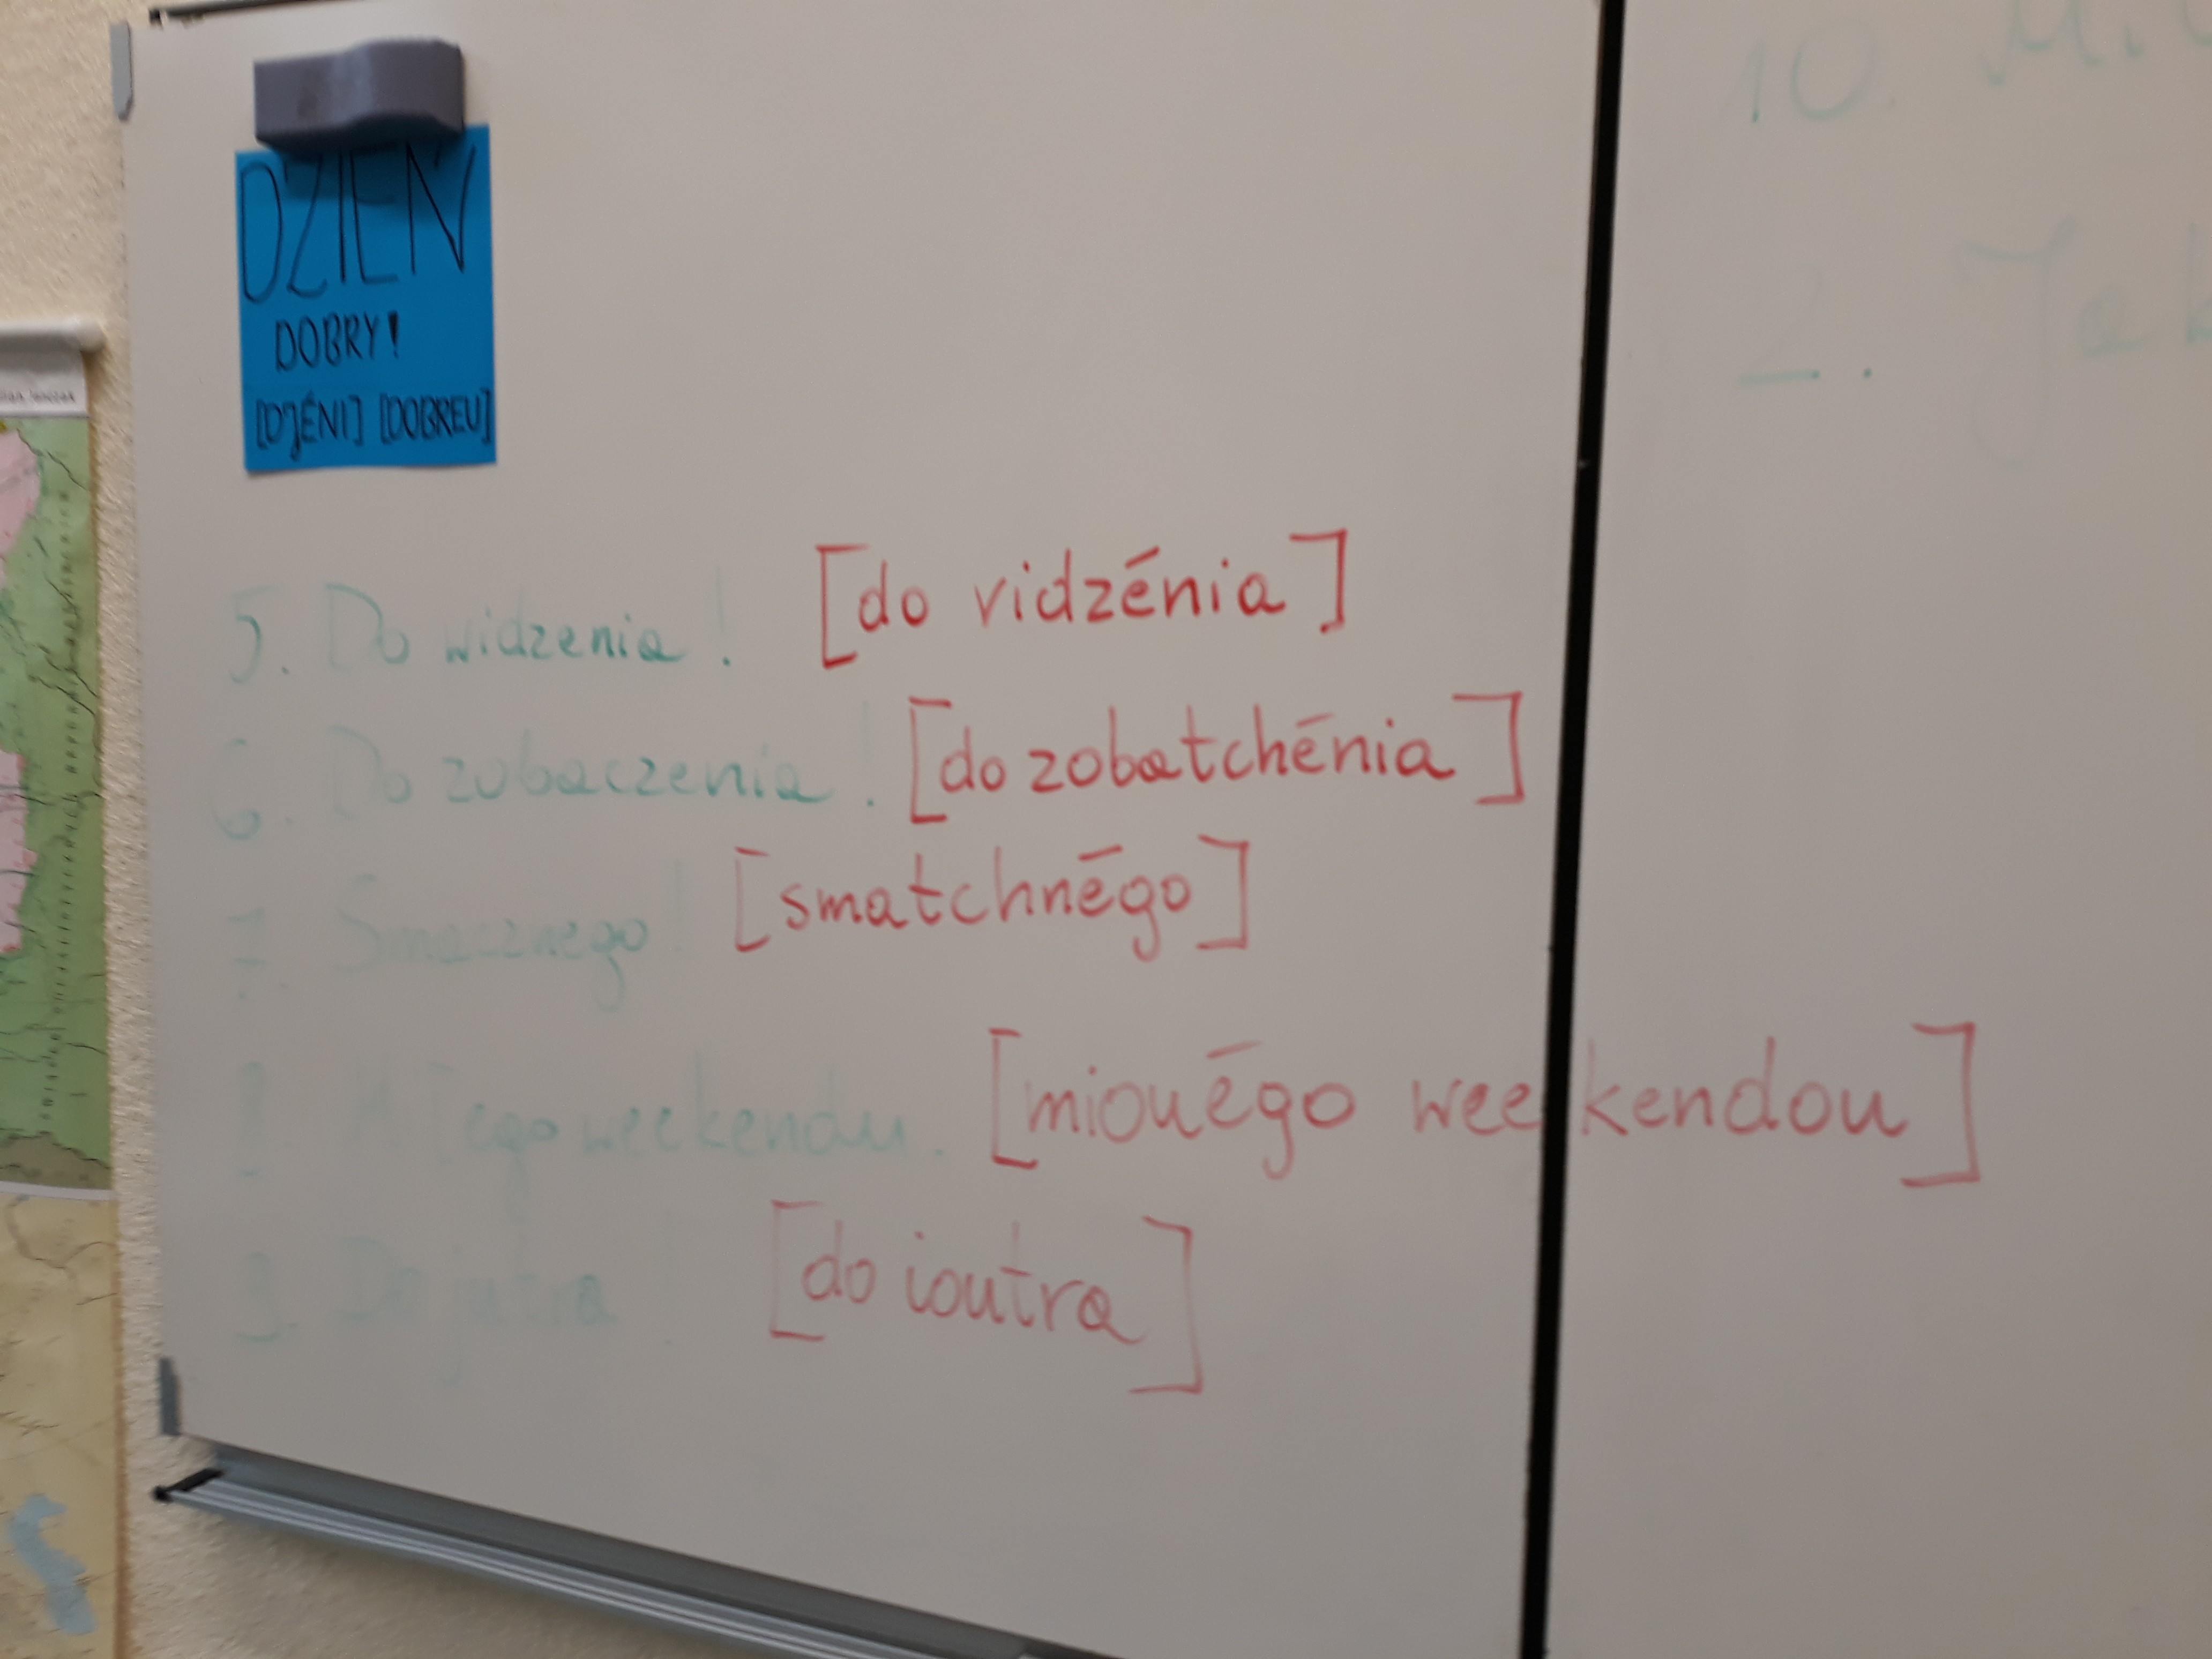 DZIEŃ
DOBRY!
[DJÉNI] [DOBREU]
5. Do widzenia! [do vidzénia]
6. Do zobaczenia! [do zobatchénia]
7. Smacznego! [smatchnégo]
8. Miłego weekendu. [miouégo weekendou]
9. Do jutra! [do ioutra]
10.
2.